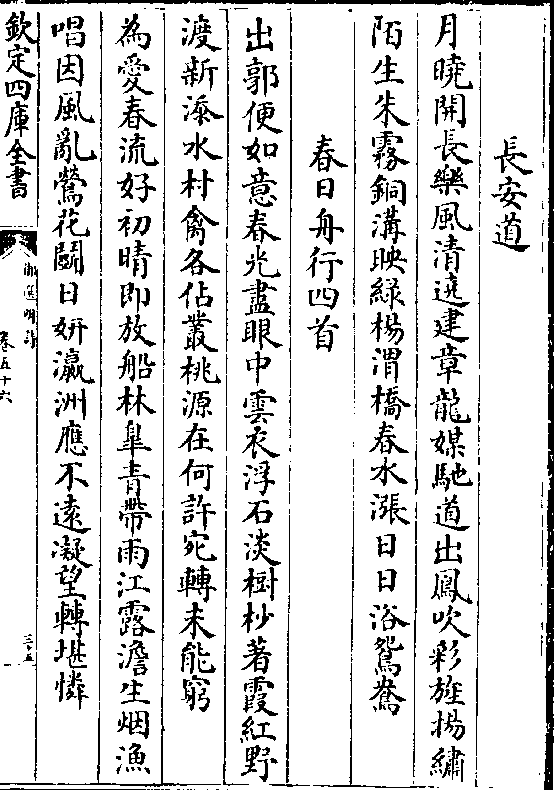 長安道
月曉開長樂風清遶建章龍媒馳道出鳳吹彩旌揚繡
陌生朱霧銅溝映綠楊渭橋春水漲日日浴鴛鴦
春日舟行四首
出郭便如意春光盡眼中雲衣浮石淡樹杪著霞紅野
渡新添水村禽各佔叢桃源在何許宛轉未能窮
為愛春流好初晴即放船林臯青帶雨江露澹生烟漁
唱因風亂鶯花鬭日妍瀛洲應不遠凝望轉堪憐
欽定四庫全書
卷五十六
三十五